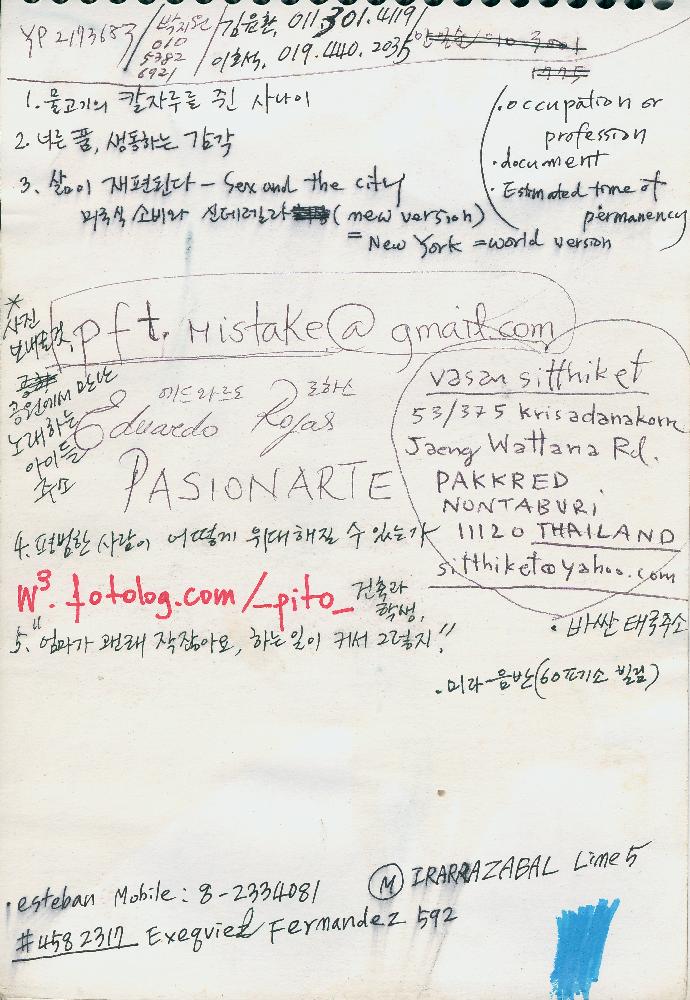 YP 2193683
박지원
010
5382
6921
김윤환, 011.301.4119
이호석, 019.440.2035
1. 물고기의 칼자루를 쥔 사나이
2. 너는 품, 생동하는 감각
3. 삶이 재편된다 - Sex and the city
미국식 소비와 신데렐라 (new version)
= New York = world version
· occupation or
profession
· document
· Estimated time of
permanency
*
사진
보내줄것,
공원에서 만난
노래하는
아이들
주모
pft.mistake@gmail.com
에드와르도 로하스
Eduardo Rojas
PASIONARTE
vasan sitthiket
53/375 Krisadanakorn
Jaeng Wattana Rd.
PAKKRED
NONTABURI
11120 THAILAND
sitthiket@yahoo.com
· 바싼 태국주소
4. 평범한 사람이 어떻게 위대해질 수 있는가
W3. fotolog.com/_pito_
건축과
학생,
5. "엄마가 괜찮 작잖아요, 하는 일이 커서 그렇지!!
· 미라-음반(60페기소 빌림)
· esteban Mobile: 8-2334081
#458 2317 Exequiel Fernandez 592
Ⓜ IRARRAZABAL Line 5